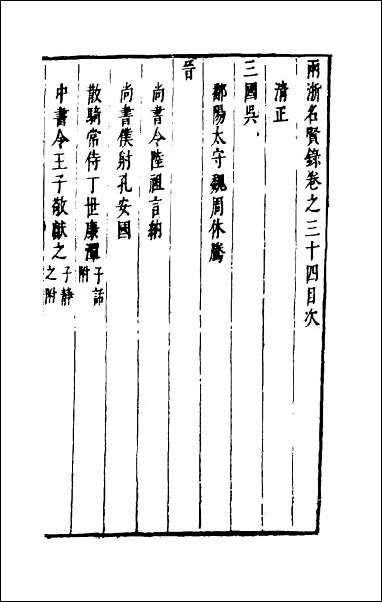 兩浙名賢錄卷之三十四目次
清正
三國吳
鄱陽太守魏周休騰
晉
尚書令陸祖言納
尚書僕射孔安國
散騎常侍丁世康潭子話附
中書令王子敬獻之子靜之附